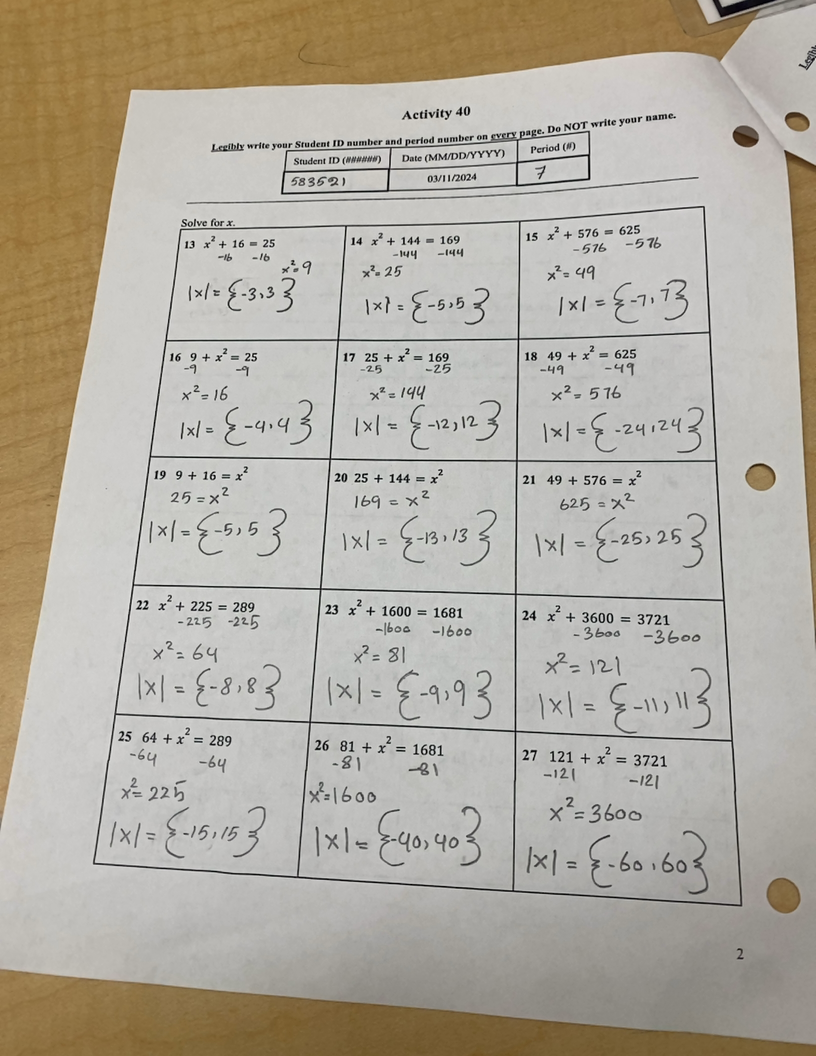 Activity 40
Legibly write your Student ID number and period number on every page. Do NOT write your name.
Student ID (######) Date (MM/DD/YYYY) Period (#)
583521 03/11/2024 7
Solve for x.
13 x² + 16 = 25
-16 -16
x²=9
|x| = {-3,3}
14 x² + 144 = 169
-144 -144
x²=25
|x| = {-5,5}
15 x² + 576 = 625
-576 -576
x²=49
|x| = {-7,7}
16 9 + x² = 25
-9 -9
x²=16
|x| = {-4,4}
17 25 + x² = 169
-25 -25
x²=144
|x| = {-12,12}
18 49 + x² = 625
-49 -49
x²=576
|x| = {-24,24}
19 9 + 16 = x²
25 = x²
|x| = {-5,5}
20 25 + 144 = x²
169 = x²
|x| = {-13,13}
21 49 + 576 = x²
625 = x²
|x| = {-25,25}
22 x² + 225 = 289
-225 -225
x²=64
|x| = {-8,8}
23 x² + 1600 = 1681
-1600 -1600
x²=81
|x| = {-9,9}
24 x² + 3600 = 3721
-3600 -3600
x²=121
|x| = {-11,11}
25 64 + x² = 289
-64 -64
x²=225
|x| = {-15,15}
26 81 + x² = 1681
-81 -81
x²=1600
|x| = {-40,40}
27 121 + x² = 3721
-121 -121
x²=3600
|x| = {-60,60}
2